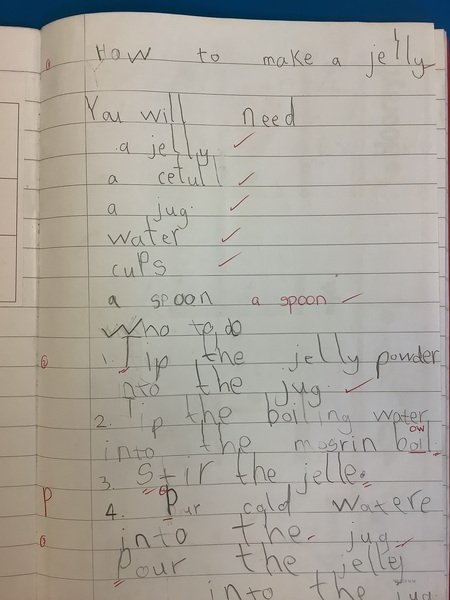 How to make a jelly
You will need
a jelly
a cetull
a jug.
water
cups
a spoon a spoon
Who to do
1. Tip the jelly powder
into the jug.
2. Tip the boiling water
ow
into the mosrin boil.
3. Stir the jelle.
P 4. Pur cold watere
into the jug.
Pour the jelley
into the jug